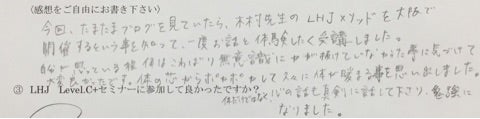 （感想をご自由にお書き下さい）
今回、たまたまブログを見ていたら、木村先生のLHJメソッドを大阪で
開催するという事を知って、一度お話と体験したく受講しました。
自分が思っている程体はこわばり無意識に力が抜けていなかった事に気づけて
大変良かったです。体の芯からポカポカして久々に体が暖まる事を思い出しました。
③ LHJ Level.C+セミナーに参加して良かったですか？
体だけではなく、心の話も真剣に話して下さり、勉強に
なりました。